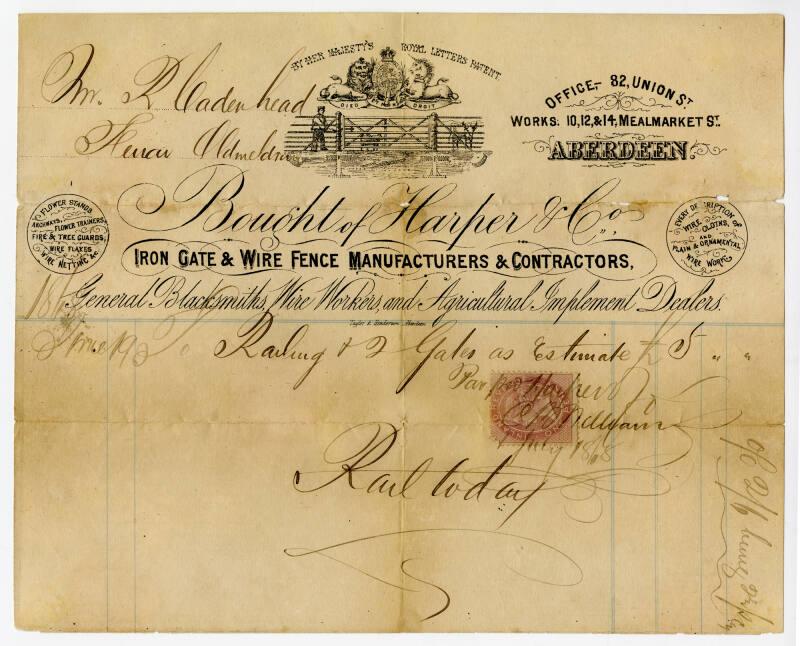 BY HER MAJESTY'S ROYAL LETTERS PATENT.
DIEU ET MON DROIT
Mr. R Cadenhead
OFFICE,- 82, UNION ST
WORKS: 10, 12, & 14, MEALMARKET ST.
ABERDEEN.
Bought of Harper & Co.
FLOWER STANDS
ARCHWAYS, FLOWER TRAINERS,
FIRE & TREE GUARDS,
WIRE FLAKES
WIRE NETTING &c
EVERY DESCRIPTION OF
WIRE CLOTHS,
AND
PLAIN & ORNAMENTAL
WIRE WORK
IRON GATE & WIRE FENCE MANUFACTURERS & CONTRACTORS,
General Blacksmiths, Wire Workers, and Agricultural Implement Dealers.
Taylor & Henderson Aberdeen
June 19 Railing & 2 Gates as Estimate £ 5 " "
July 1868
Rail today